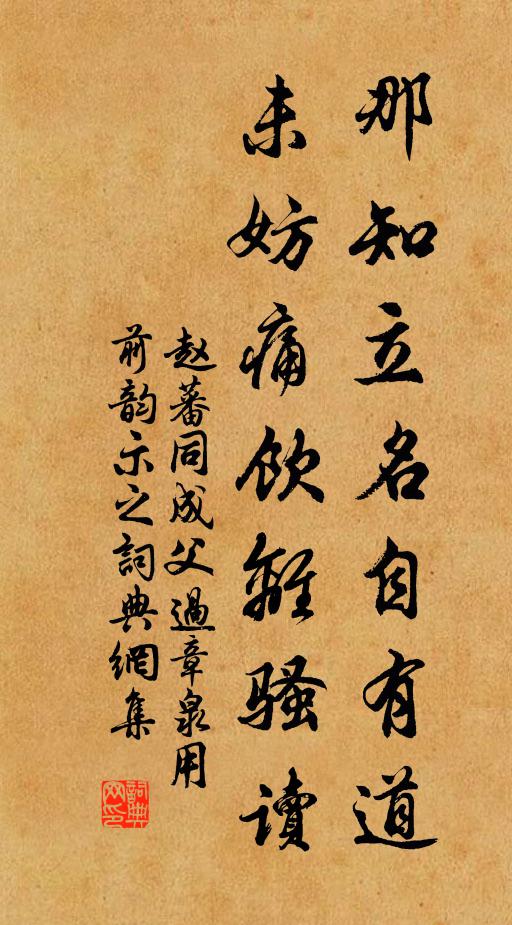 那知立名自有道
未妨痛飲離騷讀
赵蕃同成父過章泉用
前韵示之詞典網集
詞典
网印